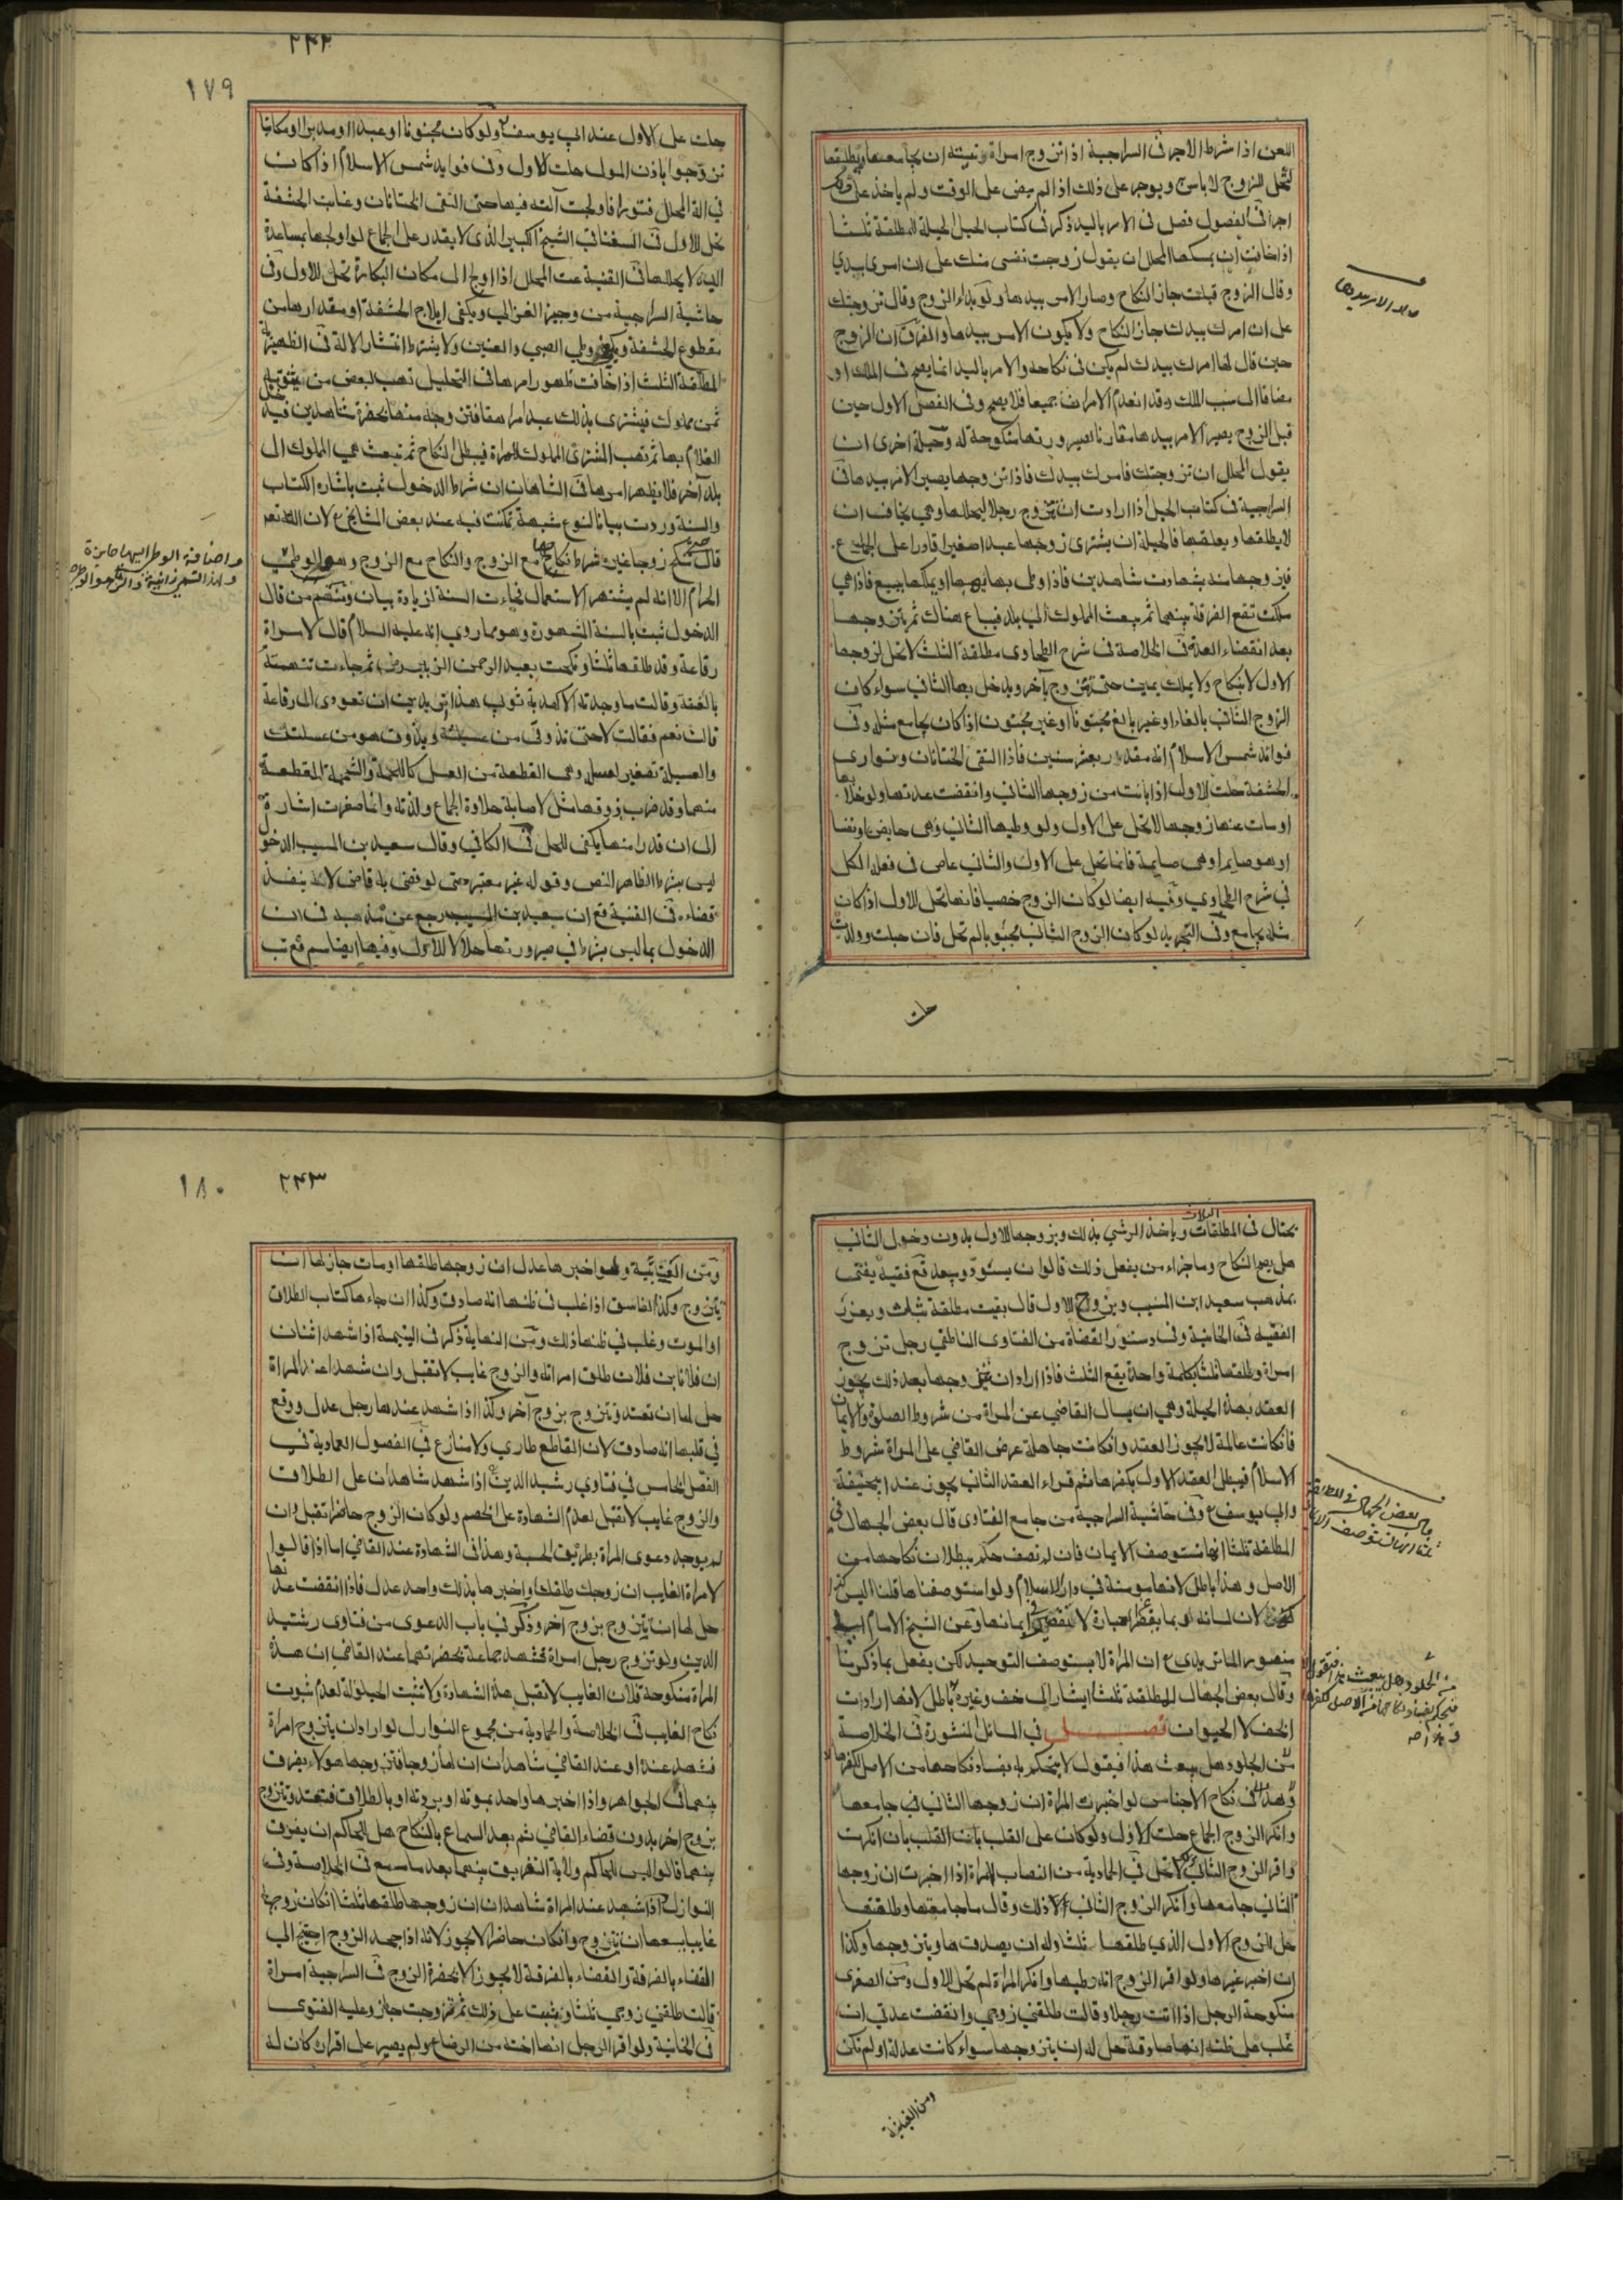 اللعن اذا شرط الاجر في السراجية اذا تزوج امراة ونيته ان يجامعها ويطلقها
لتحل للزوج لا باس به ويوجر على ذلك اذا لم يمض على الوقت ولم ياخذ على
اجرا في الفصول فصل في الامر باليد ذكر في كتاب الحيل الحيلة للمطلقة ثلثا
اذا خافت ان يمسكها المحلل ان يقول زوجت نفسي منك على ان امري بيدي
وقال الزوج قبلت جاز النكاح وصار الامر بيدها ولو بدا الزوج وقال تزوجتك
على ان امرك بيدك جاز النكاح ولا يكون الامر بيدها والفرق ان الزوج
حين قال لها امرك بيدك لم يكن في نكاحه والامر باليد انما يصح في الملك او
مضافا الى سبب الملك وقد انعدم الامران جميعا فلا يصح وفي الفصل الاول حين
قبل الزوج يصير الامر بيدها مقارنا لصيرورتها منكوحة له وحيلة اخرى ان
يقول المحلل ان تزوجتك فامرك بيدك فاذا تزوجها يصير الامر بيدها في
السراجية في كتاب الحيل اذا ارادت ان تتزوج رجلا ليحللها وهي يخاف ان
لا يطلقها ويعلقها فالحيلة ان يشتري زوجها عبدا صغيرا قادرا على الجماع
فيزوجها منه بشهادت شاهدين فاذا وطى بها يهبها او يملكها ببيع فاذا هي
ملكت تقع الفرقة بينهما ثم يبعث المملوك الى بلد فيباع هناك ثم يتزوجها
بعد انقضاء العدة في الخلاصة في شرح الطحاوي مطلقة الثلث لا تحل لزوجها
الاول لا بنكاح ولا بملك يمين حتى تتزوج بآخر ويدخل بها الثاني سواء كان
الزوج الثاني بالغا او غير بالغ مجنونا او غير مجنون اذا كان يجامع مثله وفي
فوائد شمس الاسلام انه مقدر بعشر سنين فاذا التقى الختانان وتوارى
الحشفة حلت للاول اذا بانت من زوجها الثاني وانقضت عدتها ولو خلا بها
او مات عنها زوجها لا تحل على الاول ولو وطيها الثاني وهي حايض او نفسا
او هو صايم او هي صايمة فانما تحل على الاول والثاني عاص في فعله الكل
في شرح الطحاوي وفيه ايضا لو كان الزوج خصيا فانها تحل للاول اذا كان
مثله يجامع وفي التجريد لو كان الزوج الثاني مجبوبا لم تحل فان حبلت وولدت
حلت
٢٤٢
١٧٩
حلت على الاول عند ابي يوسف ولو كان مجنونا او عبدا او مدبرا او مكاتبا
تزوجوا باذن المولى حلت للاول وفي فوايد شمس الاسلام اذا كان
في الة المحلل فتورا فاولجت آلته فيها حتى التقى الختانان وغابت الحشفة
تحل للاول في السغناقي الشيخ الكبير الذي لا يقدر على الجماع لو اولجها بمساعدة
اليد لا يحللها في القنية عت المحلل اذا اولج الى مكان البكارة تحل للاول وفي
حاشية السراجية من وجيز الغزالي ويكفي ايلاج الحشفة او مقدارها من
مقطوع الحشفة ويكفي وطي الصبي والعنين ولا يشترط انتشار الالة في الظهيرية
المطلقة الثلث اذا خافت ظهور امرها في التحليل تهب لبعض من يثق به
ثمن مملوك فيشتري بذلك عبدا مراهقا فتزوجه منها بحضرة شاهدين فيدخل
الغلام بها ثم تهب المشتري المملوك للمراة فيبطل النكاح ثم تبعث هي المملوك الى
بلد آخر فلا يظهر امرها في الشاهان ان شرط الدخول ثبت باشارة الكتاب
والسنة وردت بيانا لنوع شبهة تمكنت فيه عند بعض المشايخ لان الله تعالى
قال تنكح زوجا غيره شرط نكاحها مع الزوج والنكاح مع الزوج وهو الوطي
الحرام الا انه لم يشتهر الاستعمال فجاءت السنة لزيادة بيان ومنهم من قال
الدخول ثبت بالسنة المشهورة وهو ما روي انه عليه السلام قال لامراة
رفاعة وقد طلقها ثلثا ونكحت بعبد الرحمن الزبير ثم جاءت تتهمته
بالعنة وقالت ما وجدته الا كهدبة ثوبي هذا اتريدين ان تعودي الى رفاعة
قالت نعم فقالت لا حتى تذوقي من عسيلته ويذوق هو من عسيلتك
والعسيلة تصغير لعسل وهي القطعة من العسل كاللحمة والشحمة للقطعة
منهما وقد ضرب ذوقها مثل لاصابة حلاوة الجماع ولذته وانما صغرت اشارة
الى ان قدرا منها يكفي للحل في الكافي وقال سعيد بن المسيب الدخول
ليس بشرط الظاهر النص وقوله غير معتبر حتى لو قضى به قاض لا ينفذ
قضاءه في القنية قع ان سعيد بن المسيب رجع عن مذهبه في ان
الدخول بها ليس بشرط في صيرورتها حلالا للاول وفيها ايضا سم قع تب
يحتال في المطلقات الثلاث وياخذ الرشى بذلك ويزوجها للاول بدون دخول الثاني
هل يصح النكاح وما جزاء من يفعل ذلك قالوا ان يسود وجهه قع فقيه يفتي
بمذهب سعيد ابن المسيب ويزوج للاول قال بقيت مطلقة بثلث ويعزر
الفقيه في الخانية وفي دستور القضاة من الفتاوى الناطفي رجل تزوج
امراة وطلقها ثلثا بكلمة واحدة يقع الثلث فاذا اراد ان يتزوجها بعد ذلك يجوز
العقد بهذه الحيلة وهي ان يسال القاضي عن المراة من شروط الصلوة والايمان
فان كانت عالمة لا يجوز العقد وان كانت جاهلة عرض القاضي على المراة شروط
الاسلام فيبطل العقد الاول بكفرها ثم قراء العقد الثاني يجوز عند ابيحنيفة
وابي يوسف وفي حاشية السراجية من جامع الفتاوى قال بعض الجهال في
المطلقة ثلثا انها تستوصف الايمان فان لم تصف حكم ببطلان نكاحها من
الاصل وهذا باطل لانها مومنة في دار الاسلام ولو استوصفناها قلنا اليس
لان لسانه ربما يقصر عبارة لا ايمانها وعن الشيخ الامام ابي
منصور الماتريدي ان المراة لا يستوصف التوحيد لكن يفعل بما ذكرنا
وقال بعض الجهال للمطلقة ثلثا ايشار الى خف وغيره باطل لانها ارادت
الخف لا الحيوان فصل في المسائل المنثورة في الخلاصة
من الجلود هل يبعث هذا فيقول لا يحكم به بفساد نكاحها من الاصل لكفرها
وهذا في نكاح الاجناس لو اخبرت المراة ان زوجها الثاني جامعها
وانكر الزوج الجماع حلت للاول ولو كان على القلب بان انكرت
واقر الزوج الثاني لا تحل في الحمادية من النصاب المراة اذا اخبرت ان زوجها
الثاني جامعها وانكر الزوج الثاني ذلك وقال ما جامعتها وطلقتها
تحل للزوج الاول الذي طلقها ثلثا وله ان يصدقها ويتزوجها وكذا
ان اخبر غيرها ولو اقر الزوج انه وطيها وانكر المراة لم تحل للاول ومن الصغرى
منكوحة الرجل اذا اتت رجلا وقالت طلقني زوجي وانقضت عدتي ان
غلب على ظنه انها صادقة حل له ان يتزوجها سواء كانت عدلة او لم تكن
٢٤٣
١٨٠
ومن العتابية ولو اخبرها عدل ان زوجها طلقها او مات جاز لها ان
يتزوج وكذا الفاسق اذا غلب في ظنها انه صادق وكذا ان جاءها كتاب الطلاق
او الموت وغلب في ظنها ذلك ومن النهاية ذكر في اليتيمة اذا شهد اثنان
ان فلانا بن فلان طلق امراته والزوج غايب لا تقبل وان شهدا عند المراة
حل لها ان تعتد وتتزوج بزوج آخر وكذا اذا شهد عندها رجل عدل ووقع
في قلبها انه صادق لان القاطع طاري ولا منازع في الفصول العمادية في
الفصل الخامس في فتاوى رشيد الدين اذا شهد شاهدان على الطلاق
والزوج غايب لا تقبل لعدم الشهادة على الخصم ولو كان الزوج حاضرا تقبل وان
لم يوجد دعوى المراة بطريق الحسبة وهذا في الشهادة عند القاضي اما اذا قالوا
لامراة الغايب ان زوجك طلقك او اخبرها بذلك واحد عدل فاذا انقضت عدتها
حل لها ان تتزوج بزوج آخر وذكر في باب الدعوى من فتاوى رشيد
الدين ولو تزوج رجل امراة فشهد جماعة بحضرتهما عند القاضي ان هذه
المراة منكوحة فلان الغايب لا تقبل هذه الشهادة ولا تثبت الحيلولة لعدم ثبوت
نكاح الغايب في الخلاصة والحمادية من مجموع النوازل لو اراد ان يتزوج امراة
فشهد عنده او عند القاضي شاهدان ان لها زوجا فتزوجها هولاء يفرق
بينهما في الجواهر واذا اخبرها واحد بموته او بردته او بالطلاق فتعتد وتتزوج
بزوج اخر بدون قضاء القاضي ثم بعد السماع بالنكاح هل للحاكم ان يفرق
بينهما قالوا ليس للحاكم ولاية التفريق بينهما بعد ما سمع في الخلاصة وفي
النوازل اذا شهد عند المراة شاهدان ان زوجها طلقها ثلثا ان كان زوجها
غايبا يسعها ان تتزوج وان كان حاضرا لا يجوز لانه اذا جحد الزوج احتج الى
القضاء بالفرقة والقضاء بالفرقة لا يجوز الا بحضرة الزوج في السراجية امراة
قالت طلقني زوجي ثلثا وثبت على ذلك ثم تزوجت جاز وعليه الفتوى
في الخانية ولو اقر الرجل انها اخته من الرضاع ولم يصر على اقراره كان له